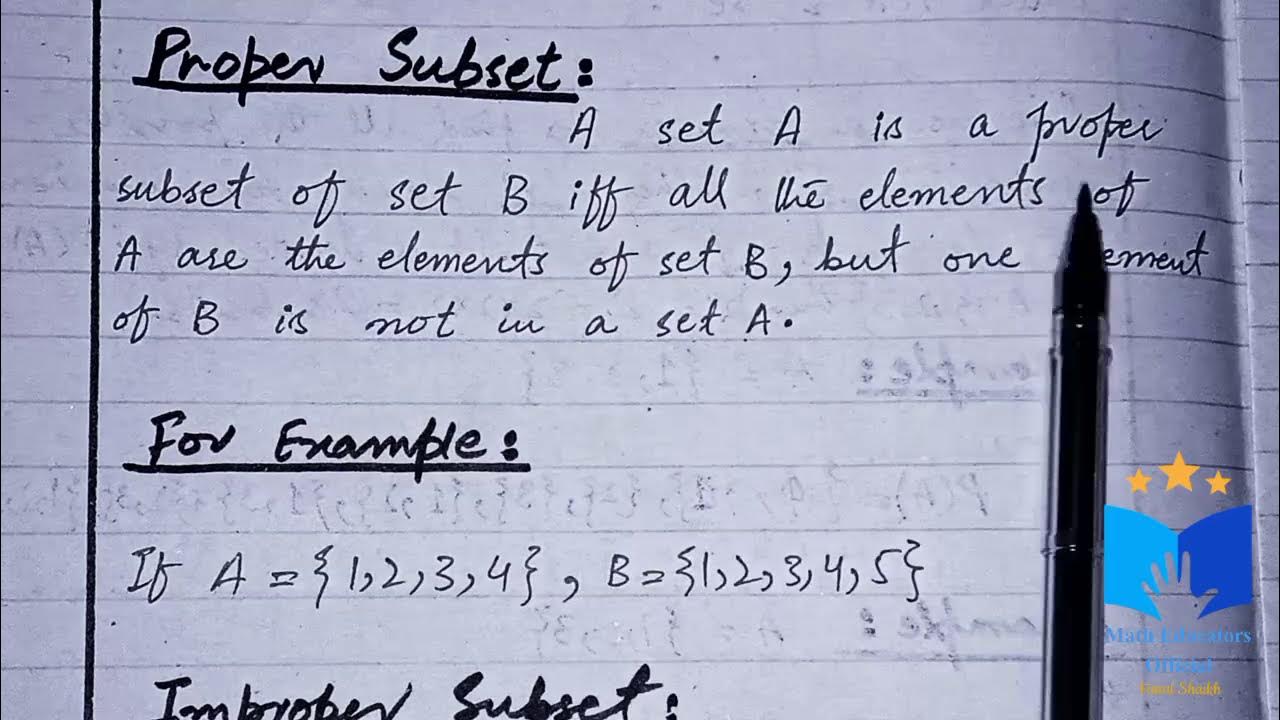 Proper Subset:
A set A is a proper
subset of set B iff all the elements of
A are the elements of set B, but one ement
of B is not in a set A.
For Example:
If A = {1,2,3,4}, B={1,2,3,4,5}
Improper Subset:
Math Educators
Official